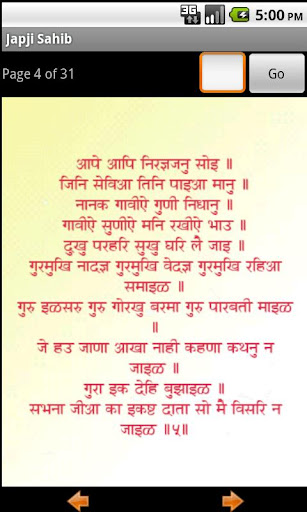 3G 5:00 PM
Japji Sahib
Page 4 of 31
Go
आपे आपि निरञ्जनु सोइ ॥
जिनि सेविआ तिनि पाइआ मानु ॥
नानक गावीऐ गुणी निधानु ॥
गावीऐ सुणीऐ मनि रखीऐ भाउ ॥
दुखु परहरि सुखु घरि लै जाइ ॥
गुरमुखि नादञ्ज गुरमुखि वेदञ्ज गुरमुखि रहिआ
समाइळ ॥
गुरु इळसरु गुरु गोरखु बरमा गुरु पारबती माइळ
॥
जे हउ जाणा आखा नाही कहणा कथनु न
जाइळ ॥
गुरा इक देहि बुझाइळ ॥
सभना जीआ का इकष्ट दाता सो मै विसरि न
जाइळ ॥५॥